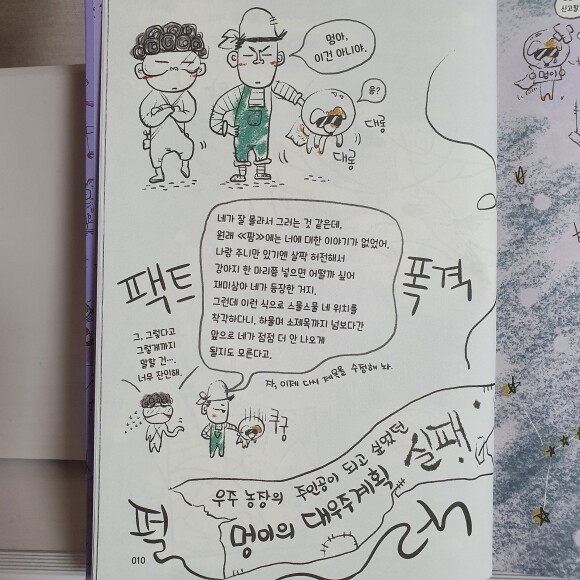 멍아,
이건 아니야.
응?
대롱
대롱
네가 잘 몰라서 그러는 것 같은데,
원래 ≪팔≫에는 너에 대한 이야기가 없었어.
나랑 주니만 있기엔 살짝 허전해서
강아지 한 마리쯤 넣으면 어떨까 싶어
재미삼아 네가 등장한 거지.
그런데 이런 식으로 스물스물 네 위치를
착각하다니, 하물며 소제목까지 넘보다간
앞으로 네가 점점 더 안 나오게
될지도 모른다고.
팩트
폭격
그, 그렇다고
그렇게까지
말할 건…
너무 잔인해.
자, 이제 다시 제목을 수정해 놔.
쿠궁
우주 농장의 주인공이 되고 싶었던
멍이의 대우주계획
실패!
010
멍이